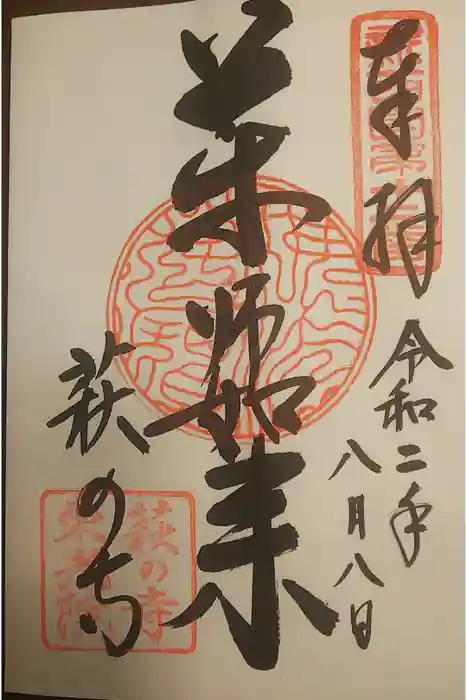 奉拝
令和二年
八月八日
薬師如来
萩の寺
萩の寺
東光院